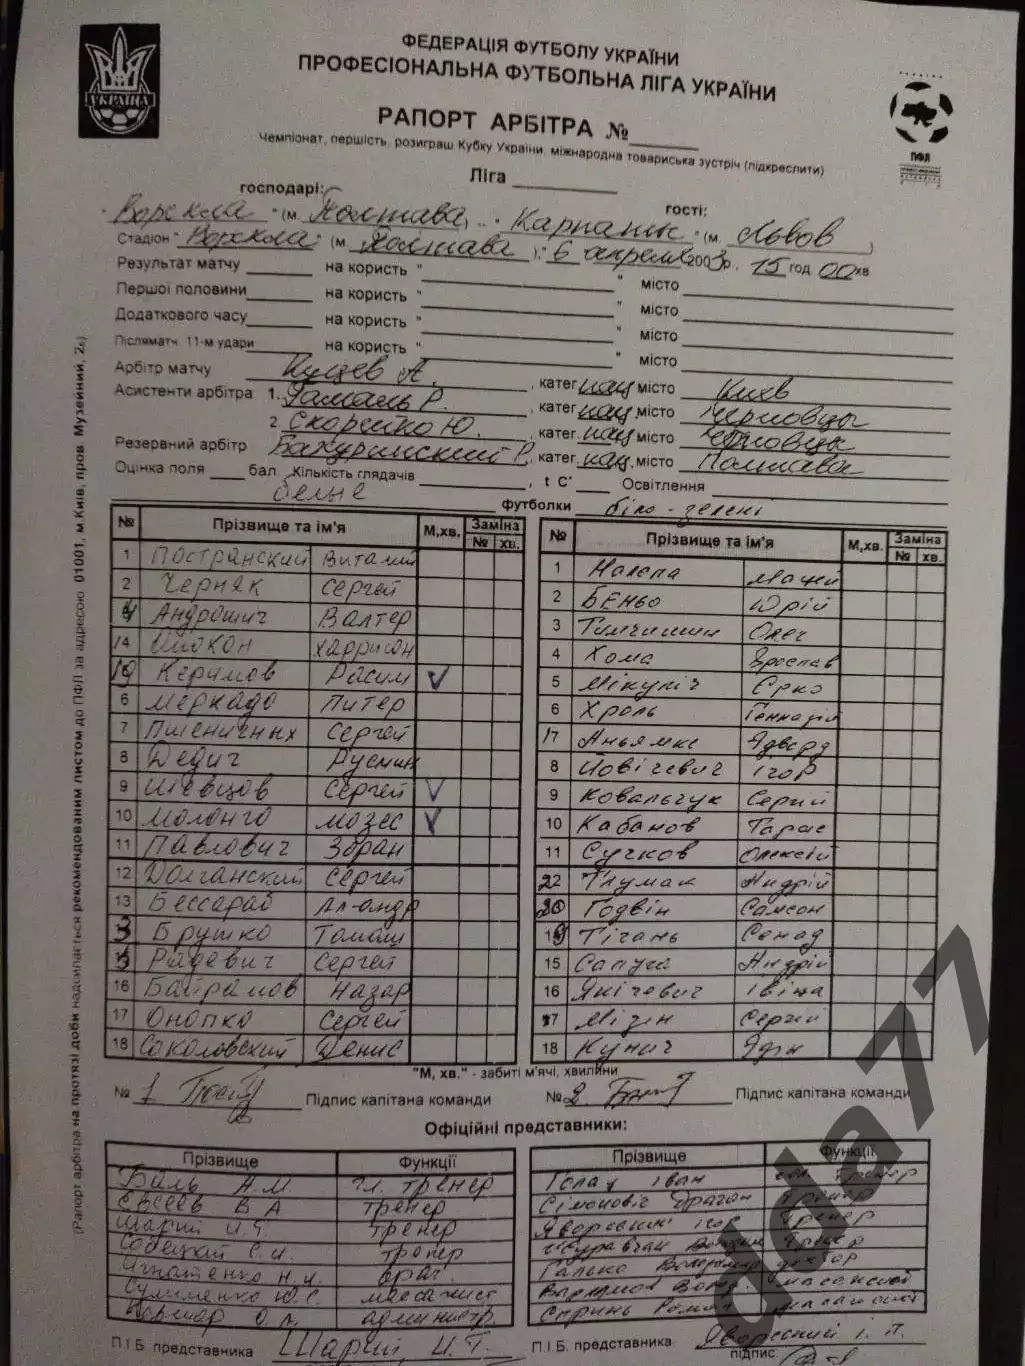 ФЕДЕРАЦІЯ ФУТБОЛУ УКРАЇНИ
ПРОФЕСІОНАЛЬНА ФУТБОЛЬНА ЛІГА УКРАЇНИ
УКРАЇНА
ПФЛ
РАПОРТ АРБІТРА №
Чемпіонат, першість, розиграш Кубку України, міжнародна товариська зустріч (підкреслити)
Ліга
господарі: гості:
"Ворскла" (м. Полтава) - "Карпати" (м. Львов)
Стадіон "Ворскла" (м. Полтава), "6 апреля 2003р. 15 год 00 хв
Результат матчу на користь " " місто
Першої половини на користь " " місто
Додаткового часу на користь " " місто
Післяматч. 11-м удари на користь " " місто
Арбітр матчу Кущев А. , катег. нац. місто Киев
Асистенти арбітра 1. Гамаль Р. , катег. нац. місто Черновцы
2. Скорейко Ю. , катег. нац. місто Черновцы
Резервний арбітр Бахуринский Р. , катег. нац. місто Полтава
Оцінка поля бал Кількість глядачів , t C° Освітлення
белые футболки біло-зелені
№ Прізвище та ім'я М,хв. Заміна № хв.
1 Постранский Виталий
2 Черняк Сергей
4 Андрошич Валтер
14 Омокон Харрисон
19 Керимов Расим V
6 Меркадо Питер
7 Пшеничных Сергей
8 Дедич Русмин
9 Шевцов Сергей V
10 Молонго Мозес V
11 Павлович Зоран
12 Долганский Сергей
13 Бессараб Ал-андр
3 Брушко Томаш
Радевич Сергей
16 Байрамов Назар
17 Онопко Сергей
18 Соколовский Денис
№ Прізвище та ім'я М,хв. Заміна № хв.
1 Налепа Мацей
2 Беньо Юрій
3 Тимчишин Олег
4 Хома Ярослав
5 Мікуліч Срко
6 Хроль Геннадій
17 Аньямке Эдвард
8 Йовічевич Ігор
9 Ковальчук Сергий
10 Кабанов Тарас
11 Сучков Олексій
22 Тлумак Андрій
20 Годвін Самсон
19 Тігань Сенад
15 Сапуга Андрій
16 Янічевич Івіца
Мізін Сергій
18 Кунич Эдін
"М, хв." - забиті м'ячі, хвилини
№ 1 Підпис капітана команди № 2 Підпис капітана команди
Офіційні представники:
Прізвище Функції
Баль А.М. гл. тренер
Евсеев В А тренер
Шарий И.Г. тренер
Собецкий С.И. тренер
Игнатенко Н.И. врач
Сулименко Ю.С. массажист
О.Л. администр.
Прізвище Функції
Голац Іван гол. тренер
Сімонович Драган тренер
Яворський Ігор тренер
тренер
Галько Володимир доктор
масажист
Роман масажист
П.І.Б. представника Шарий И.Г. П.І.Б. представника Яворський І. П.
підпис
(Рапорт арбітра на протязі доби надсилається рекомендованим листом до ПФЛ за адресою 01001, м.Київ, пров. Музейний, 2в)
dda77